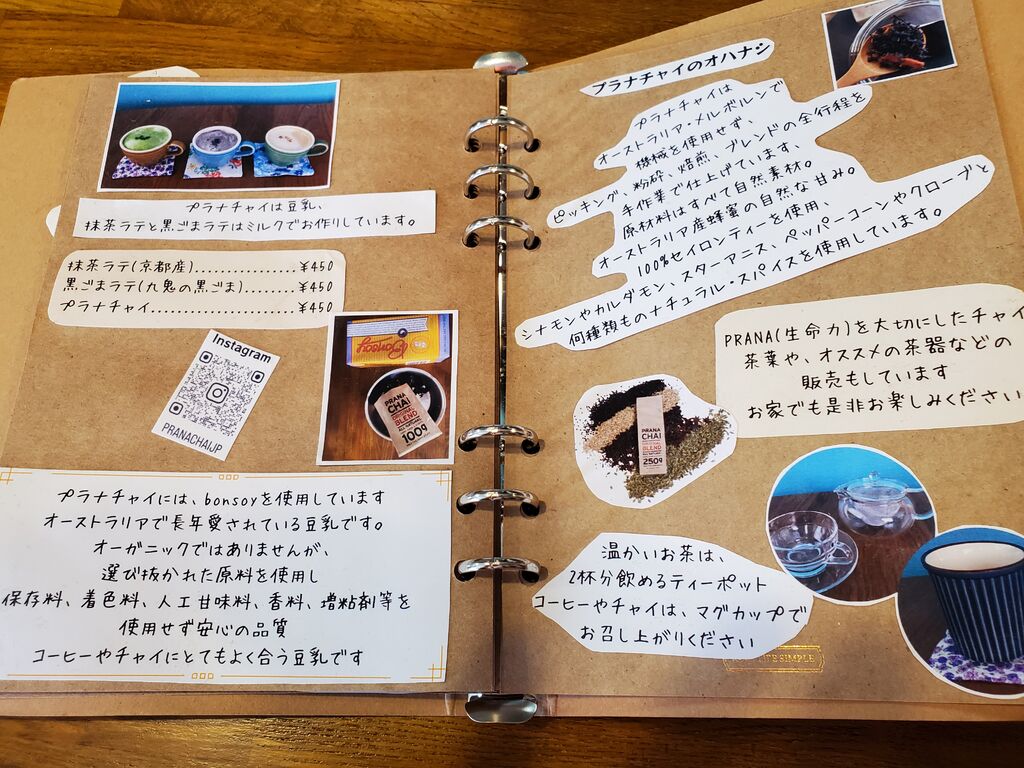 プラナチャイは豆乳、
抹茶ラテと黒ごまラテはミルクでお作りしています。
抹茶ラテ(京都産)...............¥450
黒ごまラテ(九鬼の黒ごま)........¥450
プラナチャイ......................¥450
Instagram
PRANACHAIJP
Bonsoy
PRANA
CHAI
BLEND
100g
プラナチャイには、bonsoyを使用しています
オーストラリアで長年愛されている豆乳です。
オーガニックではありませんが、
選び抜かれた原料を使用し
保存料、着色料、人工甘味料、香料、増粘剤等を
使用せず安心の品質
コーヒーやチャイにとてもよく合う豆乳です
プラナチャイのオハナシ
プラナチャイは
オーストラリア・メルボルンで
機械を使用せず、
ピッキング、粉砕、焙煎、ブレンドの全行程を
手作業で仕上げています、
原材料はすべて自然素材。
オーストラリア産蜂蜜の自然な甘み。
100%セイロンティーを使用、
シナモンやカルダモン、スターアニス、ペッパーコーンやクローブと
何種類ものナチュラル・スパイスを使用しています。
PRANA(生命力)を大切にしたチャイ
茶葉や、オススメの茶器などの
販売もしています
お家でも是非お楽しみください
PRANA
CHAI
BLEND
250g
温かいお茶は、
2杯分飲めるティーポット
コーヒーやチャイは、マグカップで
お召し上がりください
SIMPLE